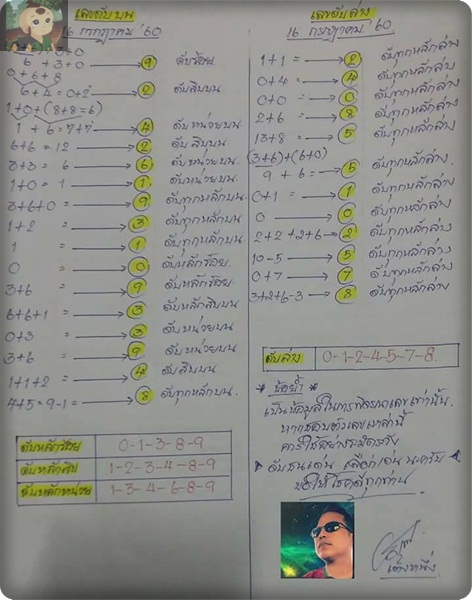 เลขดับบน
16 กรกฎาคม '60
6+3+0 → 9 ดับร้อย
0+6+8
6+4=0+2 → 2 ดับสิบบน
1+0+(8+8=6)
1+6=7+7 → 4 ดับหน่วยบน
6+6=12 → 2 ดับสิบบน
3+3= 6 → 6 ดับหน่วยบน
1+0=1 → 1 ดับหน่วยบน
3+6+0= → 9 ดับทุกหลักบน
1+2= → 3 ดับทุกหลักบน
1 = → 1 ดับทุกหลักบน
0 = → 0 ดับหลักร้อย
3+6 = → 9 ดับหลักร้อย
6+6+1 = → 3 ดับหลักสิบบน
0+3 = → 3 ดับหน่วยบน
3+6 = → 9 ดับหน่วยบน
1+1+2 = → 4 ดับสิบบน
4+5=9-1= → 8 ดับทุกหลักบน
ดับหลักร้อย 0-1-3-8-9
ดับหลักสิบ 1-2-3-4-8-9
ดับหลักหน่วย 1-3-4-6-8-9
เลขดับล่าง
16 กรกฎาคม '60
1+1= → 2 ดับทุกหลักล่าง
0+4= → 4 ดับทุกหลักล่าง
0+0= → 0 ดับทุกหลักล่าง
2+6= → 8 ดับทุกหลักล่าง
13+8= → 5 ดับทุกหลักล่าง
(3+6)+(6+0)
9+6= → 5 ดับทุกหลักล่าง
0+1= → 1 ดับทุกหลักล่าง
0 → 0 ดับทุกหลักล่าง
2+2+2+6 → 2 ดับทุกหลักล่าง
10-5 → 5 ดับทุกหลักล่าง
0+7 → 7 ดับทุกหลักล่าง
3+2+6-3 → 8 ดับทุกหลักล่าง
ดับล่าง 0-1-2-4-5-7-8
* ข้อย้ำ *
เป็นข้อมูลในการพิจารณาเลขเท่านั้น
หากชอบตัวเลขเหล่านี้
ควรใช้อย่างระมัดระวัง
ดับชนเด่น เลือกเด่นนะครับ
ขอให้โชคดีทุกท่าน